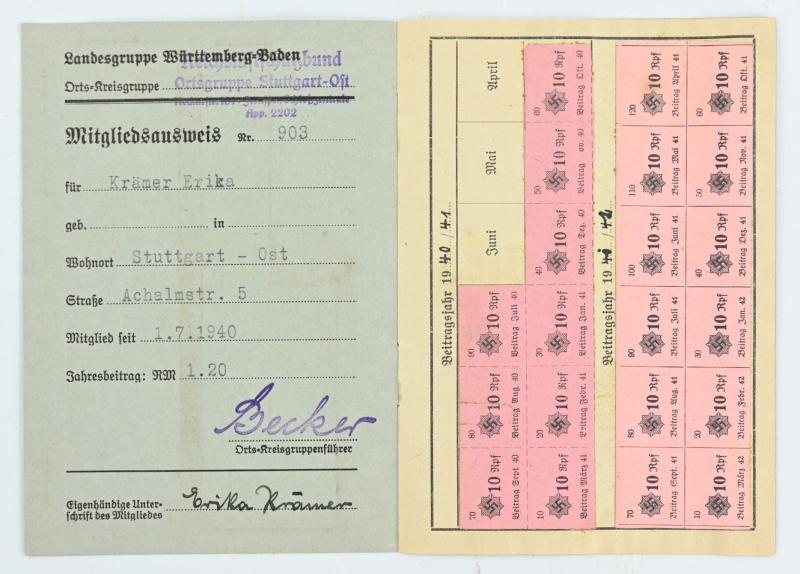 Landesgruppe Württemberg-Baden
Reichsluftschutzbund
Orts-Kreisgruppe
Ortsgruppe Stuttgart-Ost
App. 2202
Mitgliedsausweis Nr. 903
für Krämer Erika
geb. in
Wohnort Stuttgart - Ost
Straße Achalmstr. 5
Mitglied seit 1.7.1940
Jahresbeitrag: RM 1.20
Becker
Orts-Kreisgruppenführer
Eigenhändige Unter-
schrift des Mitgliedes Erika Krämer
Beitragsjahr 1940/41
April
Mai
Juni
90 10 Rpf Beitrag Juli 40
80 10 Rpf Beitrag Aug 40
70 10 Rpf Beitrag Sept 40
60 10 Rpf Beitrag Okt. 40
50 10 Rpf Beitrag ov. 40
40 10 Rpf Beitrag Dez. 40
30 10 Rpf Beitrag Jan. 41
20 10 Rpf Beitrag Febr. 41
10 10 Rpf Beitrag März 41
Beitragsjahr 1941/42
120 10 Rpf Beitrag April 41
110 10 Rpf Beitrag Mai 41
100 10 Rpf Beitrag Juni 41
90 10 Rpf Beitrag Juli 41
80 10 Rpf Beitrag Aug. 41
70 10 Rpf Beitrag Sept. 41
60 10 Rpf Beitrag Okt. 41
50 10 Rpf Beitrag Nov. 41
40 10 Rpf Beitrag Dez. 41
30 10 Rpf Beitrag Jan. 42
20 10 Rpf Beitrag Febr. 42
10 10 Rpf Beitrag März 42